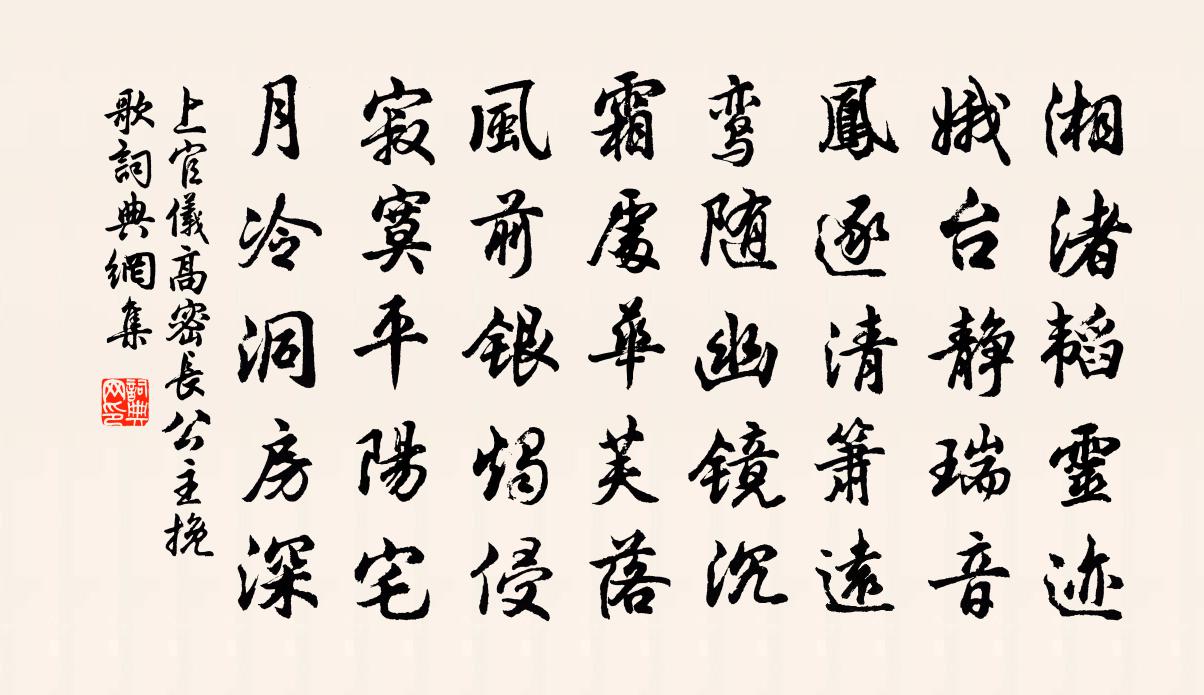 湘渚韬靈迹
娥台靜瑞音
鳳逐清簫遠
鸾随幽镜沉
霜處華芙落
風前銀燭侵
寂寞平陽宅
月冷洞房深
上官儀高密長公主挽
歌詞典網集
詞典
网印